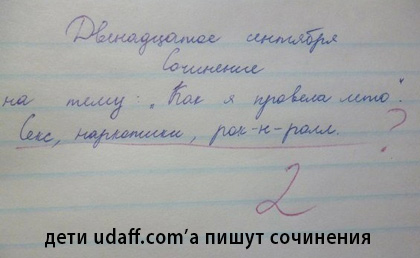 Двенадцатое сентября
Сочинение
на тему: „Как я провела лето".
Секс, наркотики, рок-н-ролл. ?
2
дети udaff.com'а пишут сочинения